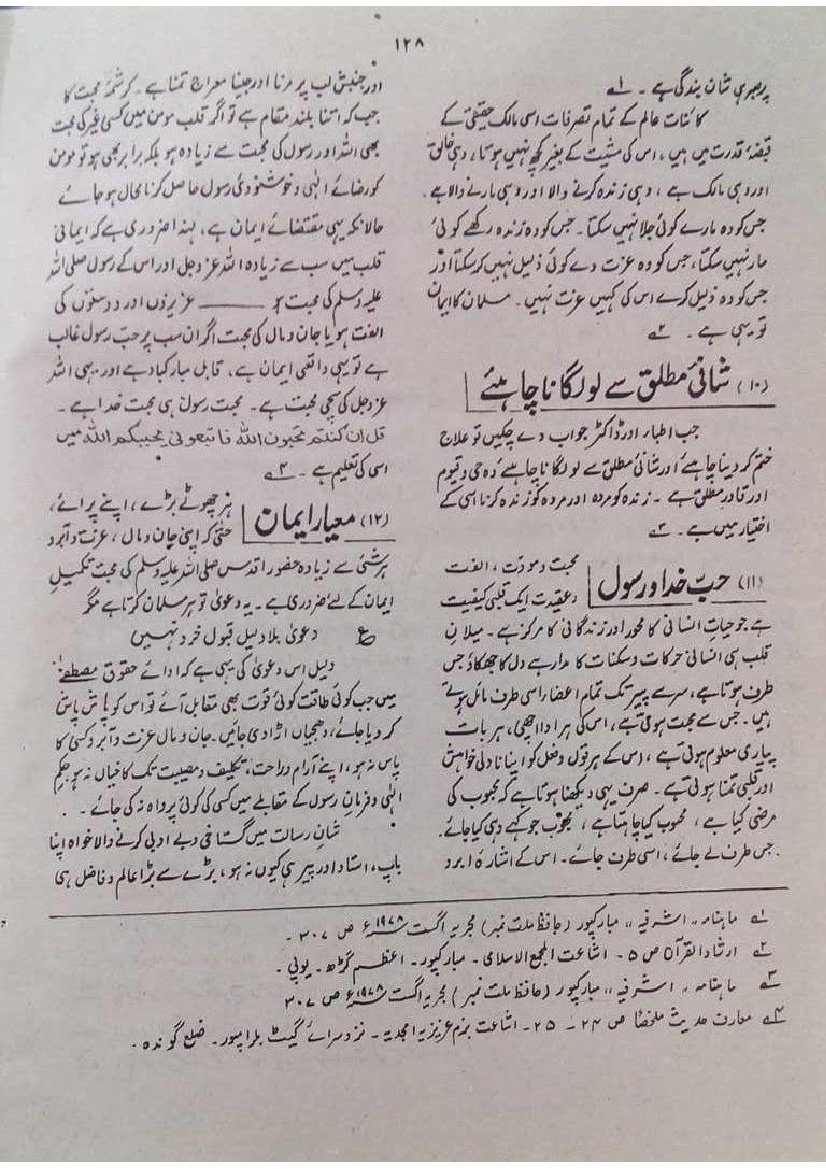 ۱۲۸
پر جبر ہی شان بندگی ہے ۔ ؎۱
کائنات عالم کے تمام تصرفات اسی مالک حقیقی کے
قبضۂ قدرت میں ہیں، اس کی مشیت کے بغیر کچھ نہیں ہوتا، وہی خالق
اور وہی مالک ہے ، وہی زندہ کرنے والا اور وہی مارنے والا ہے۔
جس کو وہ مارے کوئی جلا نہیں سکتا۔ جس کو وہ زندہ رکھے کوئی
مار نہیں سکتا، جس کو وہ عزت دے کوئی ذلیل نہیں کر سکتا اور
جس کو وہ ذلیل کرے اس کی کہیں عزت نہیں۔ مسلمان کا ایمان
تو یہی ہے ۔ ؎۲
(۱۰) شافئ مطلق سے لو لگانا چاہئے
جب اطباء اور ڈاکٹر جواب دے چکیں تو علاج
ختم کر دینا چاہئے اور شافئ مطلق سے لو لگانا چاہئے وہ حی و قیوم
اور قادر مطلق ہے ۔ زندہ کو مردہ اور مردہ کو زندہ کرنا اسی کے
اختیار میں ہے ۔ ؎۳
(۱۱) حبّ خدا و رسول
محبت و مودت ، الفت
و عقیدت ایک قلبی کیفیت
ہے جو حیات انسانی کا محور اور زندگانی کا مرکز ہے ۔ میلان
قلب ہی انسانی حرکات و سکنات کا مدار ہے دل کا جھکاؤ جس
طرف ہوتا ہے، سر سے پیر تک تمام اعضاء اسی طرف مائل ہوتے
ہیں ۔ جس سے محبت ہوتی ہے ، اس کی ہر ادا اچھی، ہر بات
پیاری معلوم ہوتی ہے ، اس کے ہر قول و فعل کو اپنانا دلی خواہش
اور قلبی تمنا ہوتی ہے ۔ صرف یہی دیکھنا ہوتا ہے کہ محبوب کی
مرضی کیا ہے ، محبوب کیا چاہتا ہے ، محبوب جو کہے وہی کیا جائے۔
جس طرف لے جائے ، اسی طرف جائے۔ اس کے اشارۂ ابرو
اور جنبش لب پر مرنا اور جینا معراج تمنا ہے ۔ کرشمۂ محبت کا
جب کہ اتنا بلند مقام ہے تو اگر قلب مومن میں کسی غیر کی محبت
بھی اللہ اور رسول کی محبت سے زیادہ ہو بلکہ برابر بھی ہو تو مومن
کو رضائے الٰہی و خوشنودئ رسول حاصل کرنا محال ہو جائے
حالانکہ یہی مقتضائے ایمان ہے ، لہٰذا ضروری ہے کہ ایمانی
قلب میں سب سے زیادہ اللہ عزوجل اور اس کے رسول صلی اللہ
علیہ وسلم کی محبت ہو ——— عزیزوں اور دوستوں کی
الفت ہو یا جان و مال کی محبت اگر ان سب پر حبّ رسول غالب
ہے تو یہی واقعی ایمان ہے ، قابل مبارکباد ہے اور یہی اللہ
عزوجل کی سچی محبت ہے ۔ محبت رسول ہی محبت خدا ہے ۔
قل ان کنتم تحبون اللہ فاتبعونی یحببکم اللہ میں
اسی کی تعلیم ہے ۔ ؎۴
(۱۲) معیار ایمان
ہر چھوٹے بڑے ، اپنے پرائے ،
حتٰی کہ اپنی جان و مال ، عزت و آبرو
ہر شئی سے زیادہ حضور اقدس صلی اللہ علیہ وسلم کی محبت تکمیل
ایمان کے لئے ضروری ہے ۔ یہ دعویٰ تو ہر مسلمان کرتا ہے مگر
ع دعویٰ بلا دلیل قبول خرد نہیں
دلیل اس دعویٰ کی یہی ہے کہ ادائے حقوق مصطفےٰ
میں جب کوئی طاقت کوئی قوت بھی مقابل آئے تو اس کو پاش پاش
کر دیا جائے، دھجیاں اڑا دی جائیں۔ جان و مال عزت و آبرو کسی کا
پاس نہ ہو ، اپنے آرام و راحت، تکلیف و مصیبت تک کا خیال نہ ہو حکم
الٰہی و فرمان رسول کے مقابلے میں کسی کی کوئی پرواہ نہ کی جائے ۔
شان رسالت میں گستاخی و بے ادبی کرنے والا خواہ اپنا
باپ، استاد اور پیر ہی کیوں نہ ہو، بڑے سے بڑا عالم و فاضل ہی
؎۱ ماہنامہ ،، اشرفیہ ،، مبارکپور (حافظ ملت نمبر) مجریہ اگست ۱۹۷۸ء ص ۳۰۷ ۔
؎۲ ارشاد القرآن ص ۵ ۔ اشاعت المجمع الاسلامی ۔ مبارکپور ۔ اعظم گڑھ ۔ یوپی ۔
؎۳ ماہنامہ ،، اشرفیہ ،، مبارکپور (حافظ ملت نمبر) مجریہ اگست ۱۹۷۸ء ص ۳۰۷
؎۴ معارف حدیث ملخصاً ص ۲۴ ۔ ۲۵ ۔ اشاعت بزم عزیزیہ امجدیہ ۔ نزد سرائے گیٹ بلرامپور ۔ ضلع گونڈہ ۔